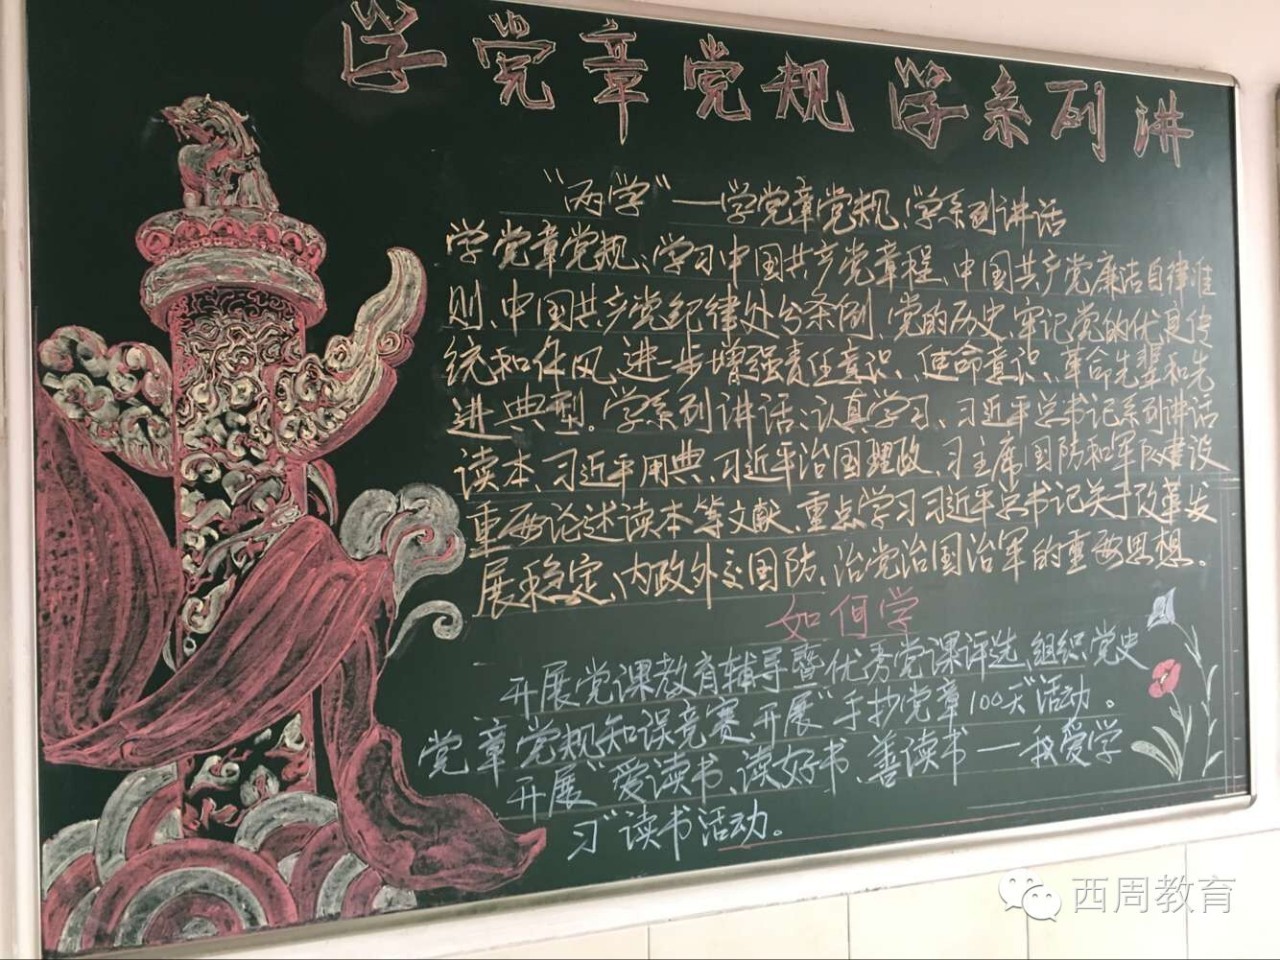 学党章党规 学系列讲
“两学”—学党章党规、学系列讲话
学党章党规、学习中国共产党章程、中国共产党廉洁自律准
则、中国共产党纪律处分条例、党的历史、牢记党的优良传
统和作风、进一步增强责任意识、使命意识、革命先辈和先
进典型。学系列讲话:认真学习、习近平总书记系列讲话
读本、习近平用典、习近平治国理政、习主席国防和军队建设
重要论述读本等文献、重点学习习近平总书记关于改革发
展稳定、内政外交国防、治党治国治军的重要思想。
如何学
开展党课教育辅导暨优秀党课评选、组织党史
党章党规知识竞赛、开展“手抄党章100天”活动。
开展“爱读书、读好书、善读书—我爱学
习”读书活动。
西周教育